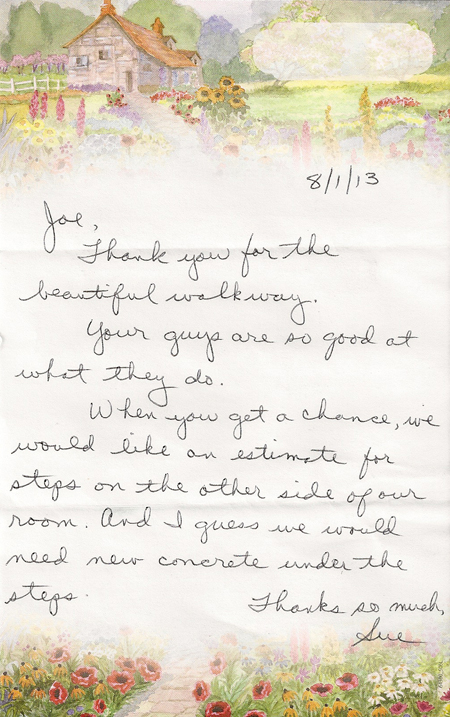 8/1/13
Joe,
Thank you for the
beautiful walkway.
Your guys are so good at
what they do.
When you get a chance, we
would like an estimate for
steps on the other side of our
room. And I guess we would
need new concrete under the
steps.
Thanks so much,
Sue